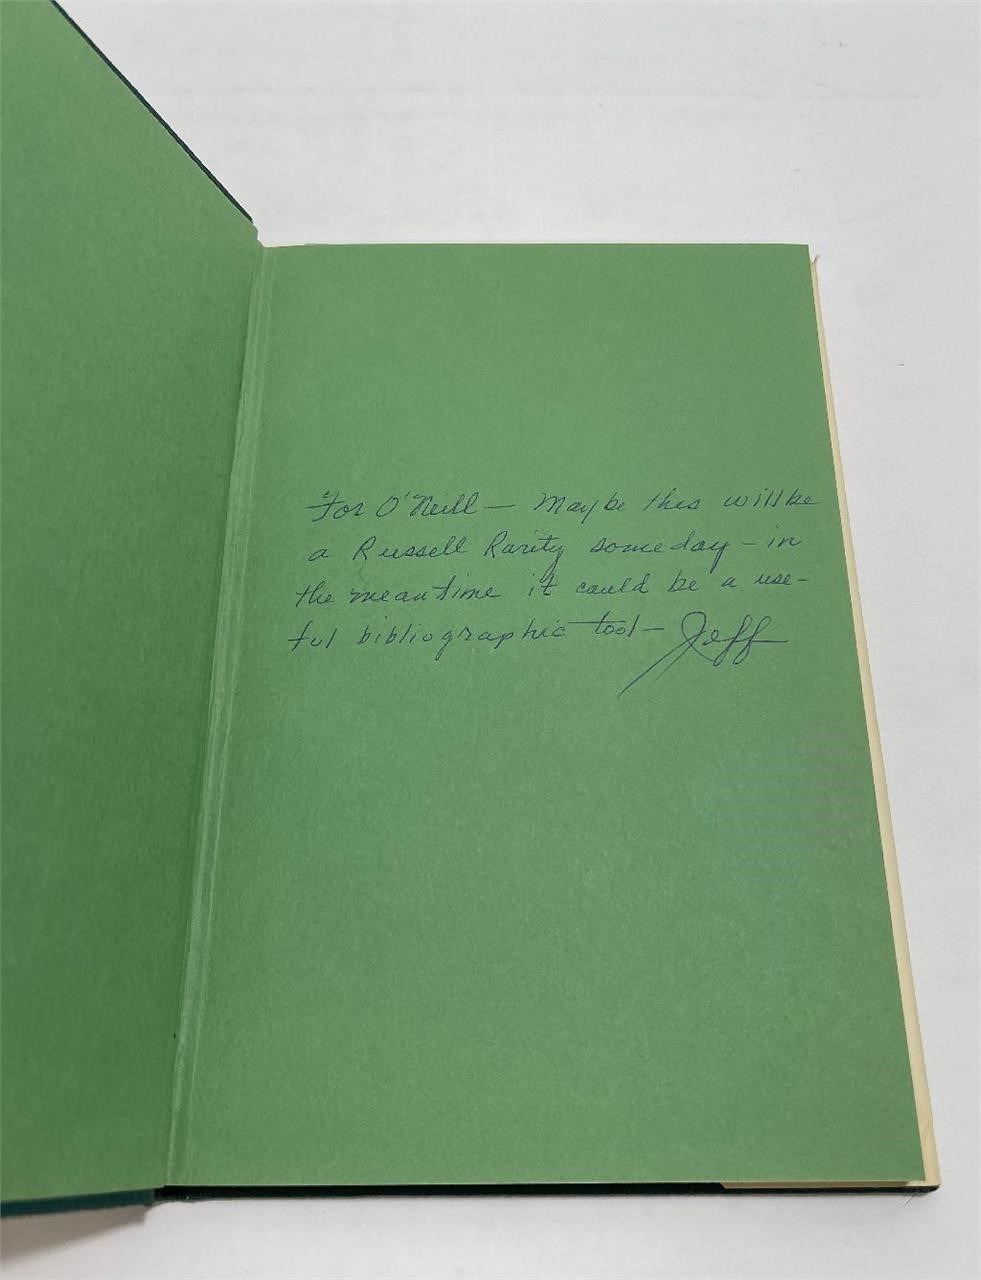 For O'Neill – Maybe this will be
a Russell Rarity someday – in
the meantime it could be a use-
ful bibliographic tool – Jeff